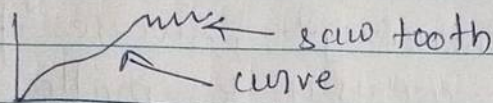 saw tooth
curve